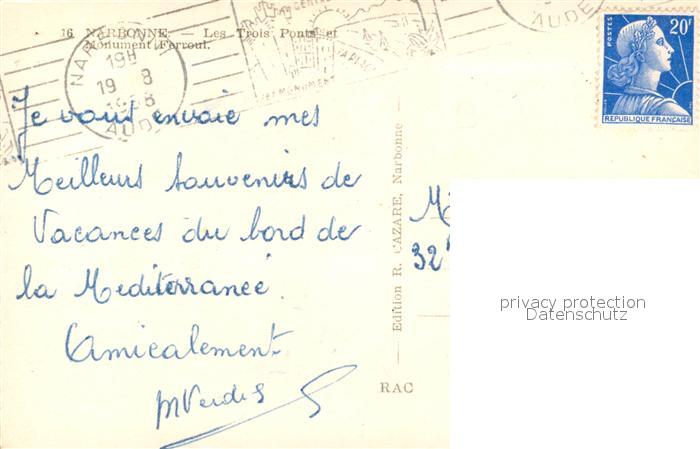 16 NARBONNE. — Les Trois Ponts et
Monument Ferroul.
19H
19 8
AUDE
AUDE
POSTES
20F
REPUBLIQUE FRANÇAISE
Je vous envoie mes
Meilleurs souvenirs de
Vacances du bord de
la Mediterranée.
Amicalement
— Edition R. CAZARE, Narbonne —
32
RAC
privacy protection
Datenschutz